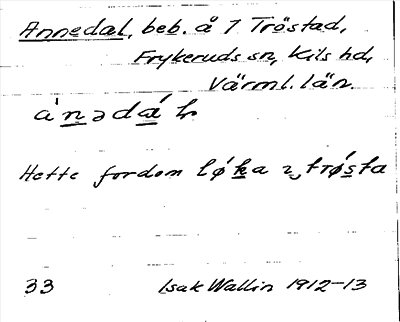 Annedal, beb. å 1 Tröstad,
Frykeruds sn, Kils hd,
Värml. län.
Hette fordom
33 Isak Wallin 1912-13